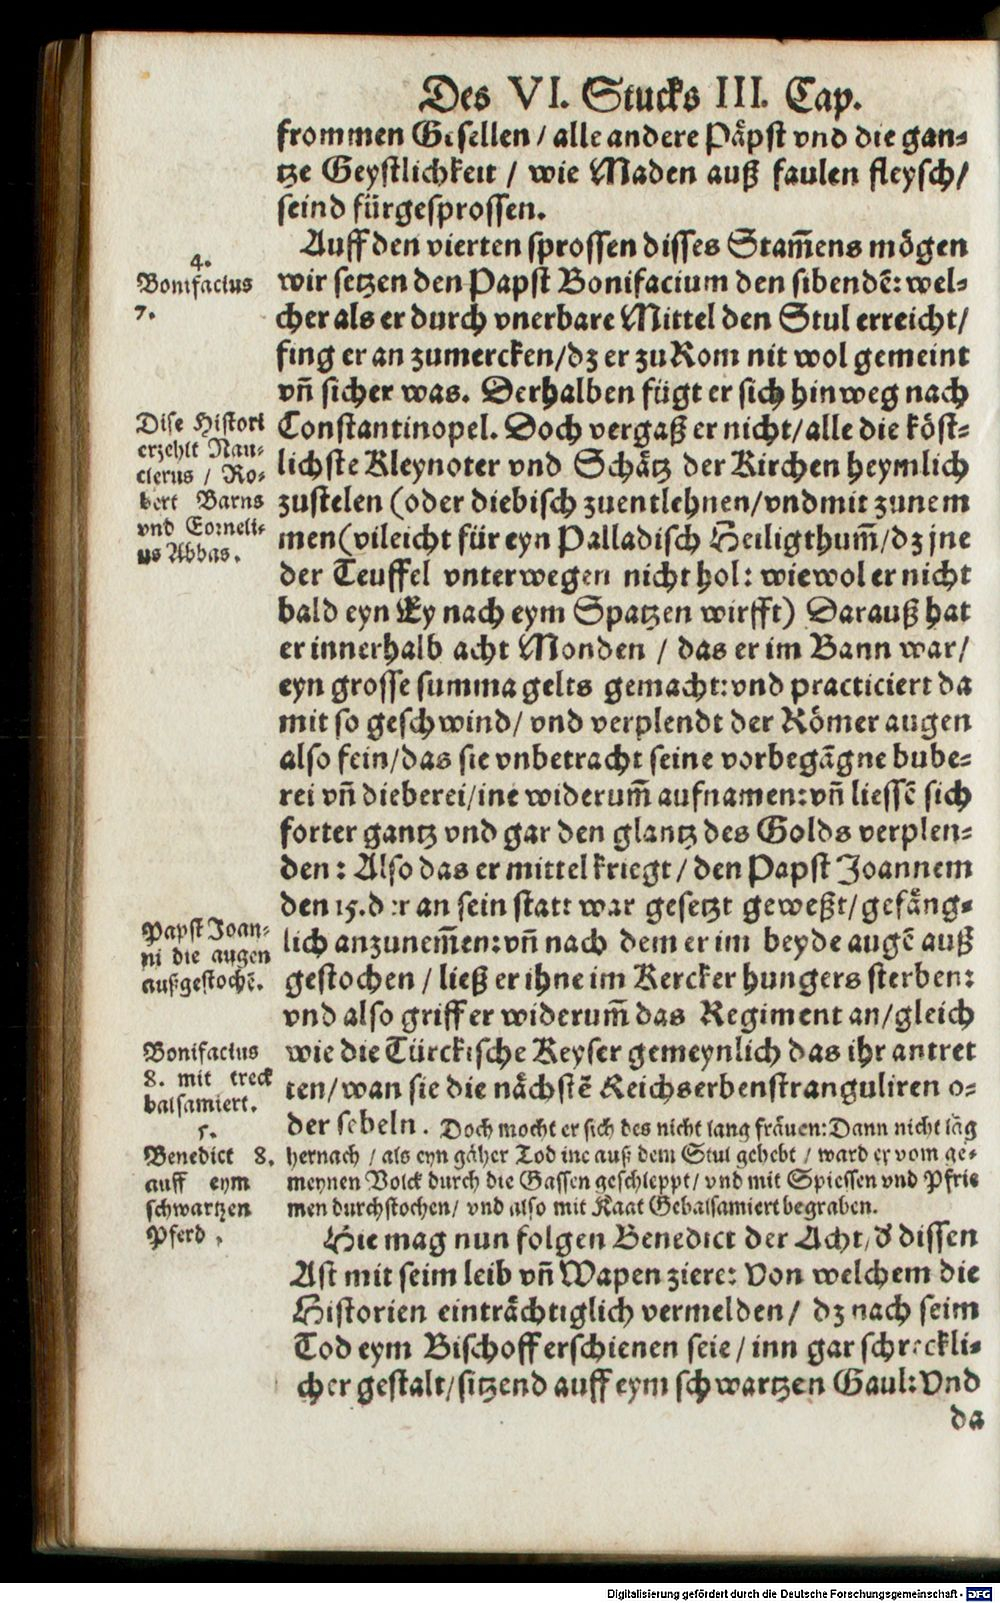 Des VI. Stucks III. Cap.
frommen Gesellen / alle andere Päpst vnd die gan-
tze Geystlichkeit / wie Maden auß faulen fleysch/
seind fürgesprossen.
Auff den vierten sprossen disses Stam̄ens mögen
4.
Bonifacius
7.
wir setzen den Papst Bonifacium den sibendē: wel-
cher als er durch vnerbare Mittel den Stul erreicht/
fing er an zumercken/dz er zu Rom nit wol gemeint
vn̄ sicher was. Derhalben fügt er sich hinweg nach
Dise Histori
erzehlt Nau-
clerus / Ro-
bert Barns
vnd Corneli-
us Abbas.
Constantinopel. Doch vergaß er nicht/alle die köst-
lichste Kleynoter vnd Schätz der Kirchen heymlich
zustelen (oder diebisch zuentlehnen/vnd mit zunem
men(vileicht für eyn Palladisch Heiligthum̄/dz jne
der Teuffel vnterwegen nicht hol: wiewol er nicht
bald eyn Ey nach eym Spatzen wirfft) Darauß hat
er innerhalb acht Monden / das er im Bann war/
eyn grosse summa gelts gemacht: vnd practiciert da
mit so geschwind/ vnd verplendt der Römer augen
also fein/das sie vnbetracht seine vorbegāgne bube-
rei vn̄ dieberei/ine widerum̄ aufnamen: vn̄ liessē sich
forter gantz vnd gar den glantz des Golds verplen-
den: Also das er mittel kriegt / den Papst Joannem
den 15. der an sein statt war gesetzt geweßt/gefäng-
Papst Joan-
ni die augen
außgestochē.
lich anzunem̄en: vn̄ nach dem er im beyde augē auß
gestochen / ließ er ihne im Kercker hungers sterben:
vnd also griff er widerum̄ das Regiment an/gleich
Bonifacius
8. mit treck
balsamiert.
wie die Türckische Keyser gemeynlich das ihr antret
ten/wan sie die nächstē Reichserben stranguliren o-
der sebeln. Doch mocht er sich des nicht lang fräuen: Dann nicht lāg
5.
Benedict 8.
auff eym
schwartzen
Pferd.
hernach / als eyn gäher Tod ine auß dem Stul gehebt / ward er vom ge-
meynen Volck durch die Gassen geschleppt/ vnd mit Spiessen vnd Pfrie
men durchstochen/ vnd also mit Kaat Gebalsamiert begraben.
Hie mag nun folgen Benedict der Acht/ d̄ dissen
Ast mit seim leib vn̄ Wapen ziere: Von welchem die
Historien einträchtiglich vermelden/ dz nach seim
Tod eym Bischoff erschienen seie / inn gar schreckli-
cher gestalt/sitzend auff eym schwartzen Gaul: Vnd
da
Digitalisierung gefördert durch die Deutsche Forschungsgemeinschaft - DFG